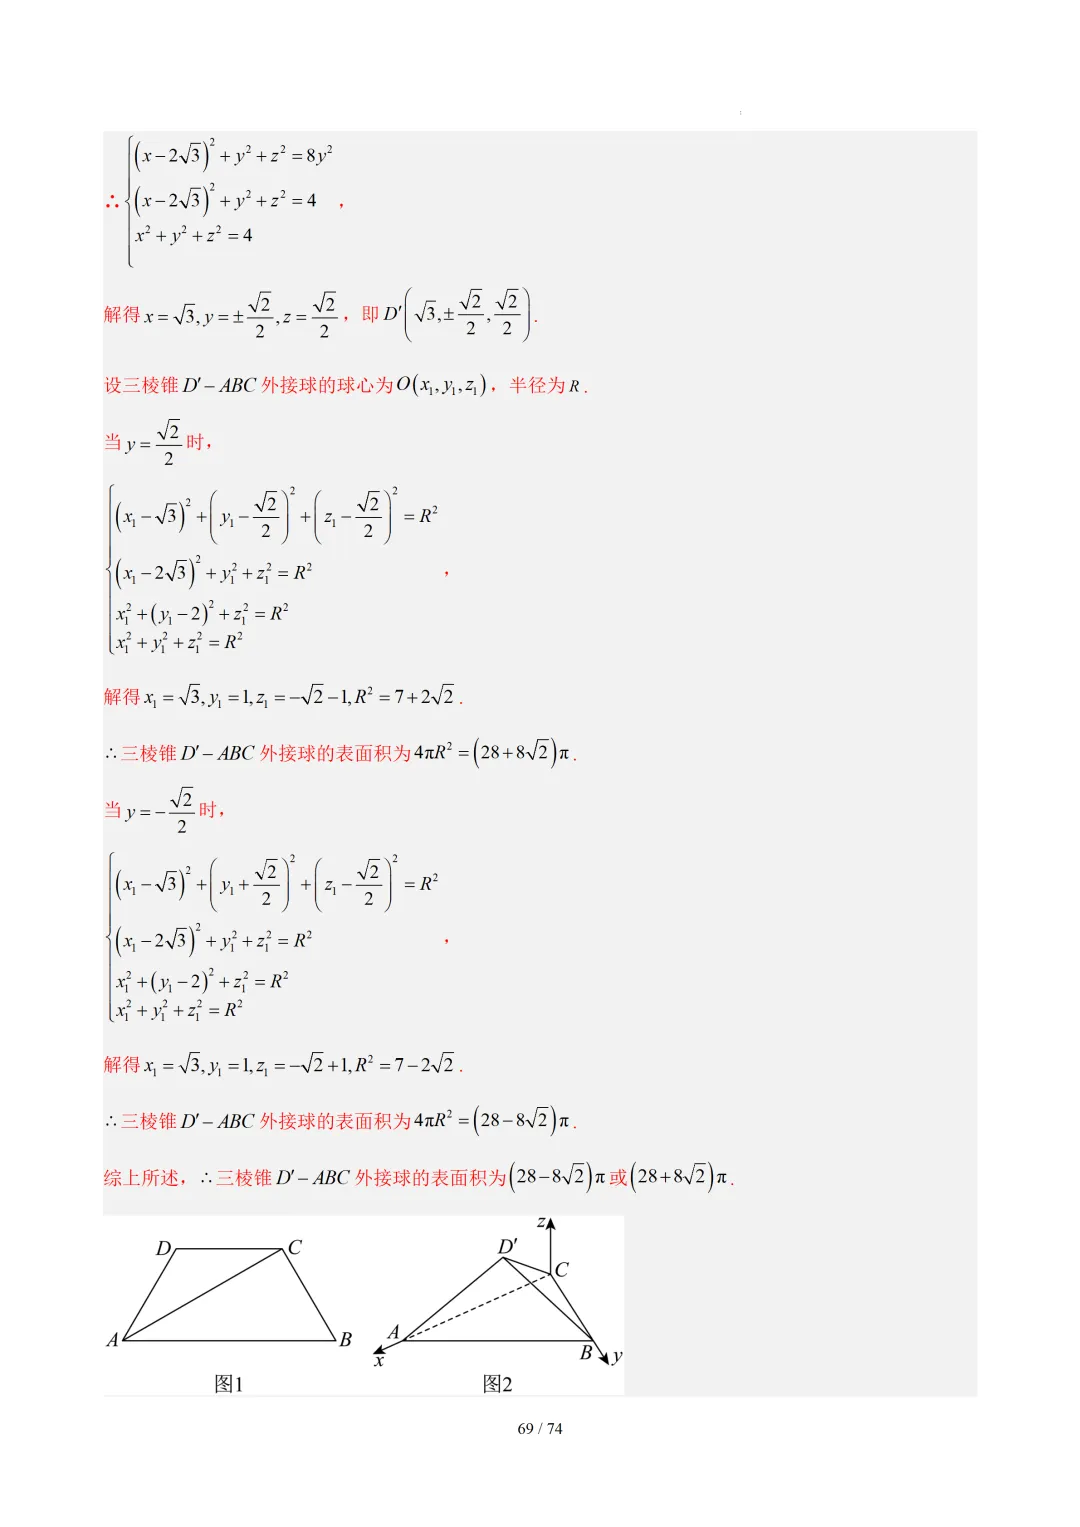 ∴ { (x−2√3)²+y²+z²=8y²
(x−2√3)²+y²+z²=4 ，
x²+y²+z²=4
解得 x=√3, y=±√2/2, z=√2/2 ，即 D′(√3,±√2/2,√2/2) .
设三棱锥 D′−ABC 外接球的球心为 O(x₁,y₁,z₁) ，半径为 R .
当 y=√2/2 时，
{ (x₁−√3)²+(y₁−√2/2)²+(z₁−√2/2)²=R²
(x₁−2√3)²+y₁²+z₁²=R² ，
x₁²+(y₁−2)²+z₁²=R²
x₁²+y₁²+z₁²=R²
解得 x₁=√3, y₁=1, z₁=−√2−1, R²=7+2√2 .
∴三棱锥 D′−ABC 外接球的表面积为 4πR²=(28+8√2)π .
当 y=−√2/2 时，
{ (x₁−√3)²+(y₁+√2/2)²+(z₁−√2/2)²=R²
(x₁−2√3)²+y₁²+z₁²=R² ，
x₁²+(y₁−2)²+z₁²=R²
x₁²+y₁²+z₁²=R²
解得 x₁=√3, y₁=1, z₁=−√2+1, R²=7−2√2 .
∴三棱锥 D′−ABC 外接球的表面积为 4πR²=(28−8√2)π .
综上所述，∴三棱锥 D′−ABC 外接球的表面积为 (28−8√2)π 或 (28+8√2)π .
D C
A B
图1
z
D′
C
A
B
x y
图2
69 / 74